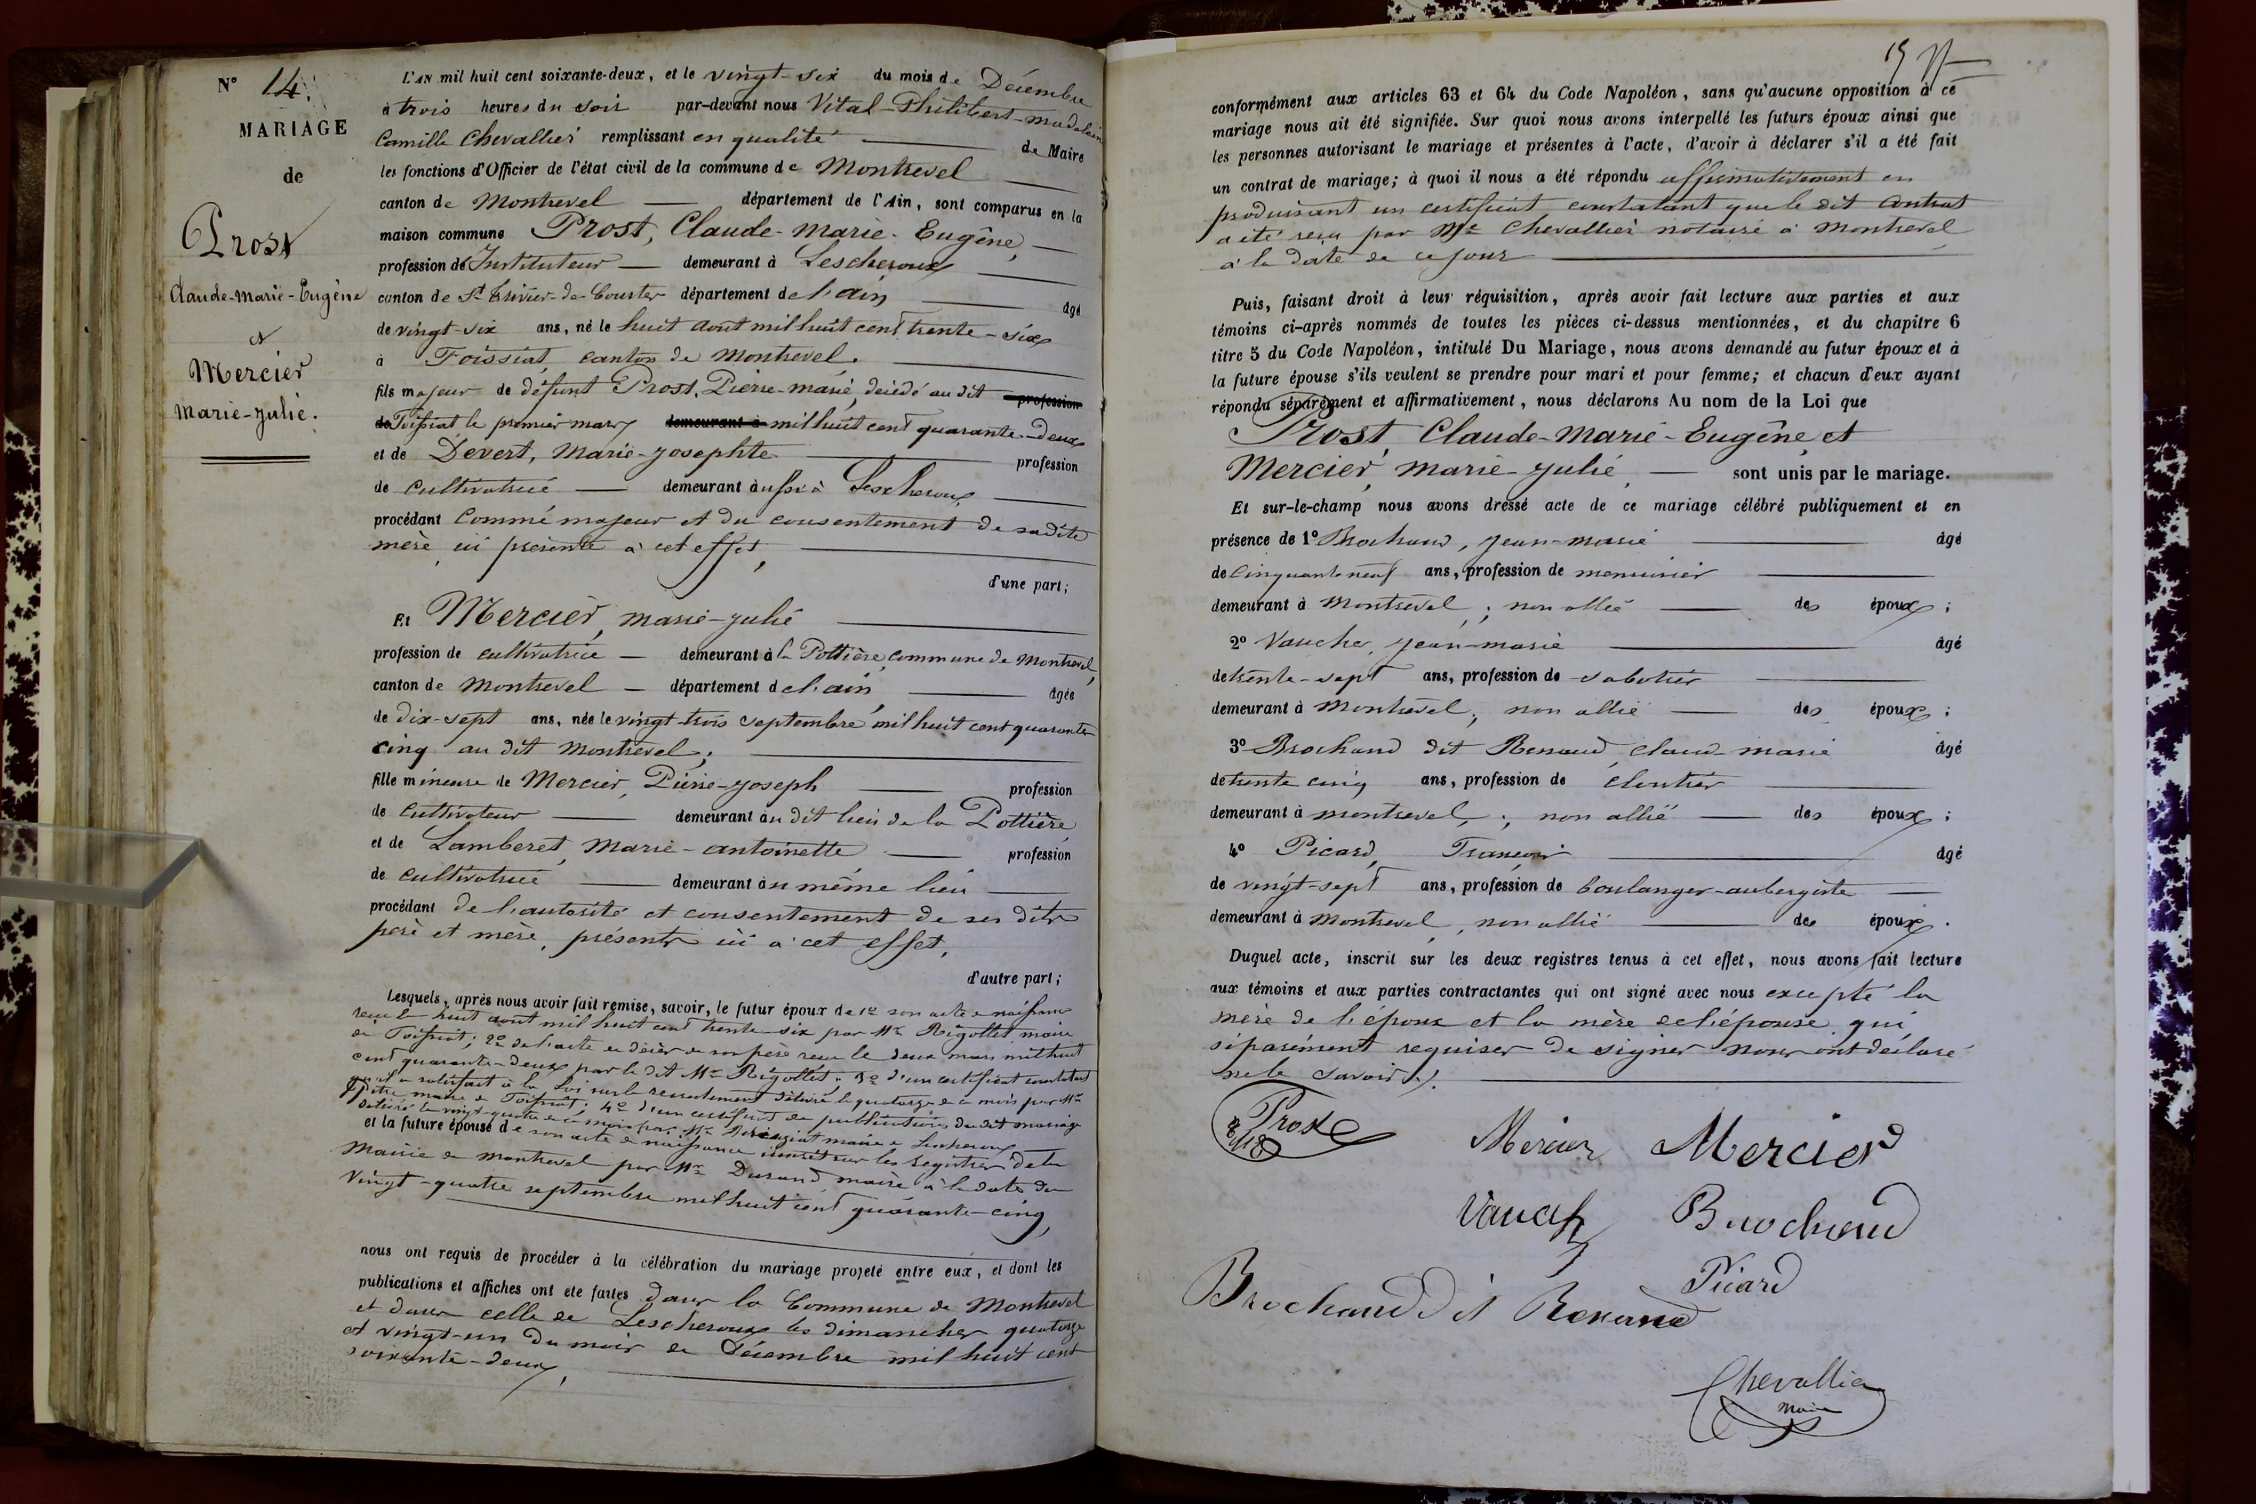 N° 14.
MARIAGE
de
Prost
Claude-Marie-Eugène
et
Mercier
Marie-Julie.
L'AN mil huit cent soixante-deux, et le vingt-six du mois de Décembre
à trois heures du soir par-devant nous Vital-Philibert-Madelain
Camille Chevallier remplissant en qualité de Maire
les fonctions d'Officier de l'état civil de la commune de Montrevel
canton de Montrevel département de l'Ain, sont comparus en la
maison commune Prost, Claude-Marie-Eugène,
profession de Instituteur demeurant à Lescheroux
canton de St Trivier-de-Courtes département de l'ain âgé
de vingt-six ans, né le huit aout mil huit cent trente-six
à Foissiat, canton de Montrevel.
fils majeur de défunt Prost, Pierre-Marie, décédé au dit profession
de Foissiat le premier mars demeurant à mil huit cent quarante-deux
et de Devert, Marie-Josephte profession
de cultivatrice demeurant aussi à Lescheroux
procédant comme majeur et du consentement de sadite
mère ici présente à cet effet,
d'une part;
Et Mercier, Marie-Julie
profession de cultivatrice demeurant à la Pottière, commune de Montrevel,
canton de Montrevel département de l'ain, âgée
de dix-sept ans, née le vingt-trois septembre mil huit cent quarante
cinq au dit Montrevel;
fille mineure de Mercier, Pierre-Joseph profession
de cultivateur demeurant au dit lieu de la Pottière
et de Lamberet, Marie-antoinette profession
de cultivatrice demeurant au même lieu
procédant de l'autorité et consentement de ses dits
père et mère, présents ici à cet effet,
d'autre part;
Lesquels, après nous avoir fait remise, savoir, le futur époux de 1° son acte de naissance
reçu le huit aout mil huit cent trente-six par Mr Rigollet maire
de Foissiat; 2° de l'acte de décès de son père reçu le deux mars mil huit
cent quarante-deux par le dit Mr Rigollet; 3° d'un certificat constatant
qu'il a satisfait à la loi sur le recrutement délivré le quatorze de ce mois par Mr
maire de Foissiat; 4° d'un certificat de publication du dit mariage
délivré le vingt-quatre de ce mois par Mr maire de Lescheroux
et la future épouse de son acte de naissance inscrit sur les registres de la
Mairie de Montrevel par Mr Durand maire à la date du
vingt-quatre septembre mil huit cent quarante-cinq,
nous ont requis de procéder à la célébration du mariage projeté entre eux, et dont les
publications et affiches ont été faites dans la Commune de Montrevel
et dans celle de Lescheroux les dimanches quatorze
et vingt-un du mois de Décembre mil huit cent
soixante-deux,
conformément aux articles 63 et 64 du Code Napoléon, sans qu'aucune opposition à ce
mariage nous ait été signifiée. Sur quoi nous avons interpellé les futurs époux ainsi que
les personnes autorisant le mariage et présentes à l'acte, d'avoir à déclarer s'il a été fait
un contrat de mariage; à quoi il nous a été répondu affirmativement en
produisant un certificat constatant que le dit contrat
a été reçu par Me Chevallier notaire à Montrevel
à la date de ce jour
Puis, faisant droit à leur réquisition, après avoir fait lecture aux parties et aux
témoins ci-après nommés de toutes les pièces ci-dessus mentionnées, et du chapitre 6
titre 5 du Code Napoléon, intitulé Du Mariage, nous avons demandé au futur époux et à
la future épouse s'ils veulent se prendre pour mari et pour femme; et chacun d'eux ayant
répondu séparément et affirmativement, nous déclarons Au nom de la Loi que
Prost, Claude-Marie-Eugène et
Mercier, Marie-Julie, sont unis par le mariage.
Et sur-le-champ nous avons dressé acte de ce mariage célébré publiquement et en
présence de 1° Brochand, Jean-Marie âgé
de cinquante neuf ans, profession de menuisier
demeurant à Montrevel; non allié des époux;
2° Vauche, Jean-Marie âgé
de trente-sept ans, profession de sabotier
demeurant à Montrevel; non allié des époux;
3° Brochand dit Renaud, Claud-Marie âgé
de trente cinq ans, profession de cloutier
demeurant à Montrevel; non allié des époux;
4° Picard, François âgé
de vingt-sept ans, profession de boulanger-aubergiste
demeurant à Montrevel, non allié des époux.
Duquel acte, inscrit sur les deux registres tenus à cet effet, nous avons fait lecture
aux témoins et aux parties contractantes qui ont signé avec nous excepté la
mère de l'époux et la mère de l'épouse qui
séparément requises de signer nous ont déclaré
ne le savoir.
Prost
Mercier Mercier
Vauche Brochand
Picard
Brochand dit Renaud
Chevallier
Maire